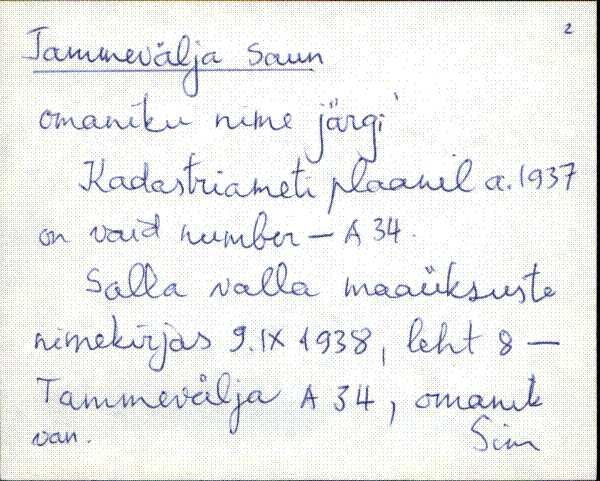 2
Tammevälja Saun
omaniku nime järgi
Kadastriameti plaanil a. 1937
on vaid number — A 34.
Salla valla maaüksuste
nimekirjas 9. IX 1938, leht 8 —
Tammevälja A 34, omanik
van. Sim